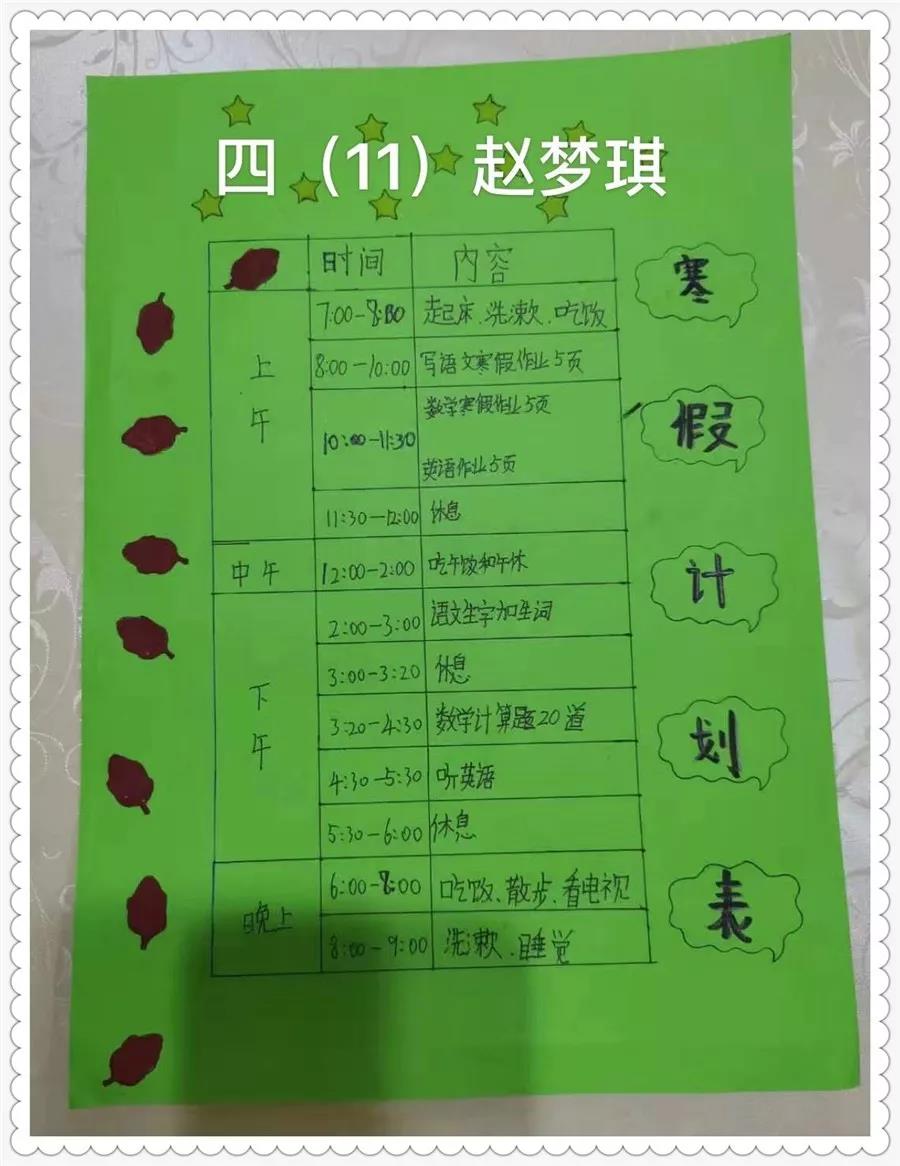 四（11）赵梦琪
时间 内容
上午
7:00-8:00 起床、洗漱、吃饭
8:00-10:00 写语文寒假作业5页
10:00-11:30 数学寒假作业5页
英语作业5页
11:30-12:00 休息
中午 12:00-2:00 吃午饭和午休
下午
2:00-3:00 语文生字加生词
3:00-3:20 休息
3:20-4:30 数学计算题20道
4:30-5:30 听英语
5:30-6:00 休息
晚上
6:00-8:00 吃饭、散步、看电视
8:00-9:00 洗漱、睡觉
寒
假
计
划
表